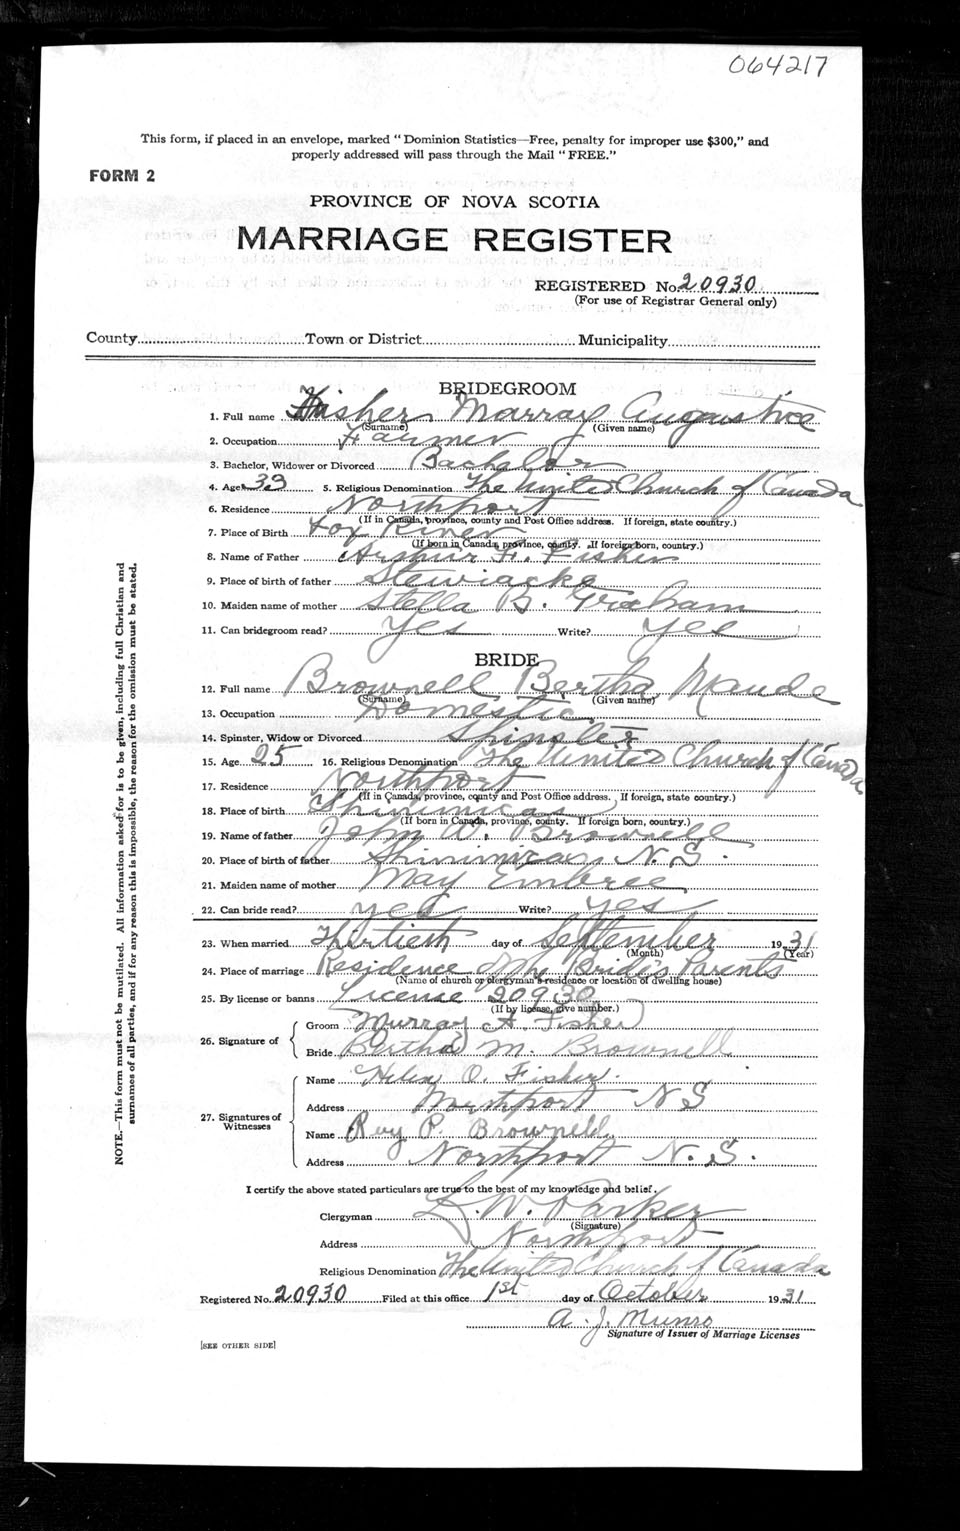 064217
This form, if placed in an envelope, marked “Dominion Statistics—Free, penalty for improper use $300,” and
properly addressed will pass through the Mail “FREE.”
FORM 2
PROVINCE OF NOVA SCOTIA
MARRIAGE REGISTER
REGISTERED No. 20930
(For use of Registrar General only)
County Town or District Municipality
BRIDEGROOM
1. Full name Fisher Murray Augustine
(Surname) (Given name)
2. Occupation Farmer
3. Bachelor, Widower or Divorced Bachelor
4. Age 33 5. Religious Denomination The United Church of Canada
6. Residence Northport
(If in Canada, province, county and Post Office address. If foreign, state country.)
7. Place of Birth Fox River
(If born in Canada, province, county. If foreign born, country.)
8. Name of Father Arthur F. Fisher
9. Place of birth of father Stewiacke
10. Maiden name of mother Stella B. Graham
11. Can bridegroom read? Yes Write? Yes
BRIDE
12. Full name Brownell Bertha Maude
(Surname) (Given name)
13. Occupation Domestic
14. Spinster, Widow or Divorced Spinster
15. Age 25 16. Religious Denomination The United Church of Canada
17. Residence Northport
(If in Canada, province, county and Post Office address. If foreign, state country.)
18. Place of birth Shinimicas
(If born in Canada, province, county. If foreign born, country.)
19. Name of father John A. Brownell
20. Place of birth of father Shinimicas, N. S.
21. Maiden name of mother May Embree
22. Can bride read? yes Write? yes
23. When married Thirtieth day of September 1931
(Month) (Year)
24. Place of marriage Residence of the Bride's Parents
(Name of church or clergyman's residence or location of dwelling house)
25. By license or banns License 20930
(If by license, give number.)
26. Signature of Groom Murray A. Fisher
Bride Bertha M. Brownell
27. Signatures of Witnesses Name Helen O. Fisher.
Address Northport N S
Name Roy P. Brownell
Address Northport N. S.
I certify the above stated particulars are true to the best of my knowledge and belief.
Clergyman L. W. Parker
(Signature)
Address Northport
Religious Denomination The United Church of Canada
Registered No. 20930 Filed at this office 1st day of October 1931
A. J. Munro
Signature of Issuer of Marriage Licenses
[SEE OTHER SIDE]
NOTE.—This form must not be mutilated. All information asked for is to be given, including full Christian and
surnames of all parties, and if for any reason this is impossible, the reason for the omission must be stated.